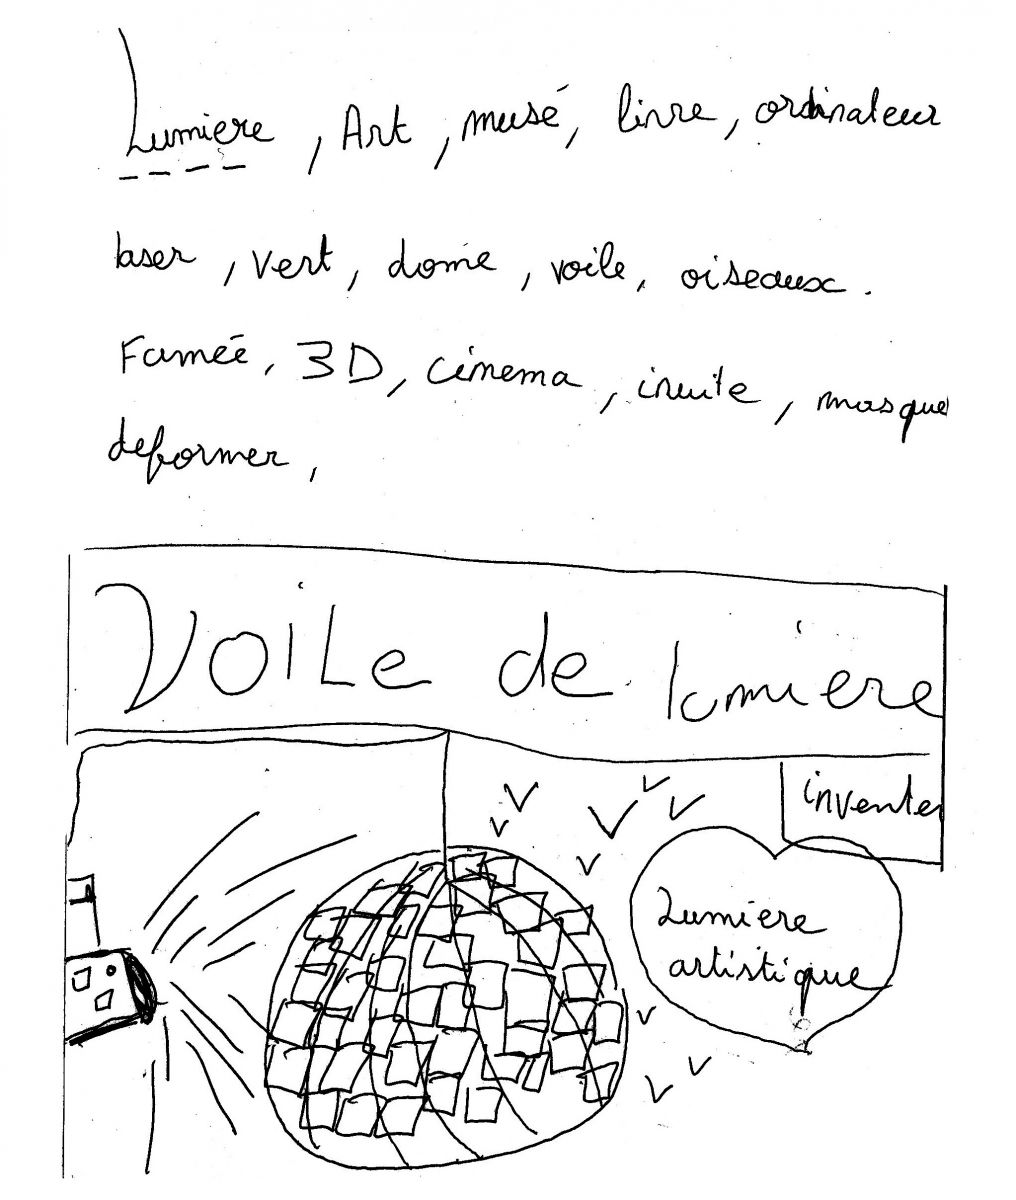 Lumiere, Art, musé, livre, ordinateur
laser, vert, dome, voile, oiseaux.
Fumée, 3D, cinema, invite, masque
deformer,
Voile de lumiere
inventer
Lumiere
artistique